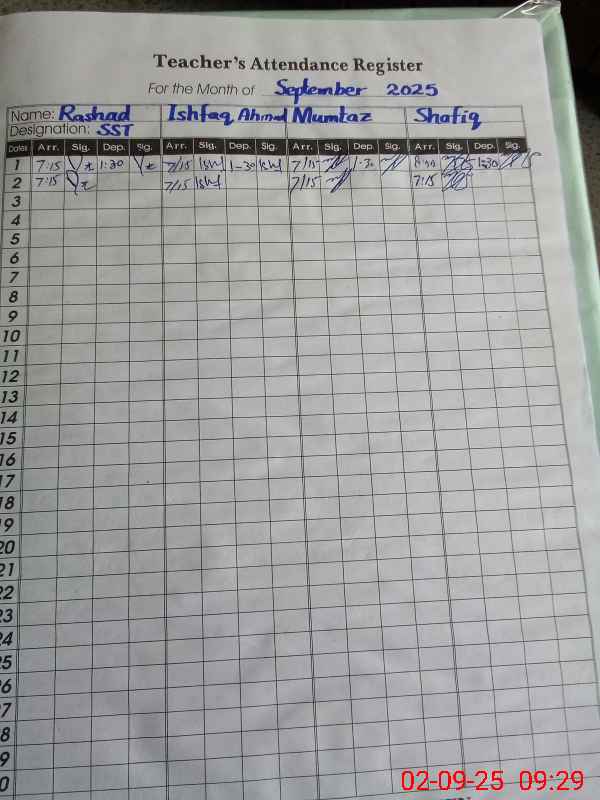 Teacher's Attendance Register
For the Month of September 2025
Name: Rashad Ishfaq Ahmad Mumtaz Shafiq
Designation: SST
Dates Arr. Sig. Dep. Sig. Arr. Sig. Dep. Sig. Arr. Sig. Dep. Sig. Arr. Sig. Dep. Sig.
1 7:15 1:30 7/15 Ishf 1-30 Ishf 7/15 1-30 1:30
2 7:15 7/15 Ishf 7/15 7:15
3
4
5
6
7
8
9
10
11
12
13
14
15
16
17
18
19
20
21
22
23
24
25
26
27
28
29
30
02-09-25 09:29